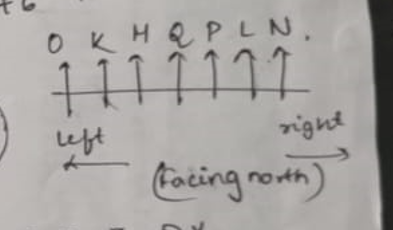 O K H Q P L N .
left
right
(facing north)